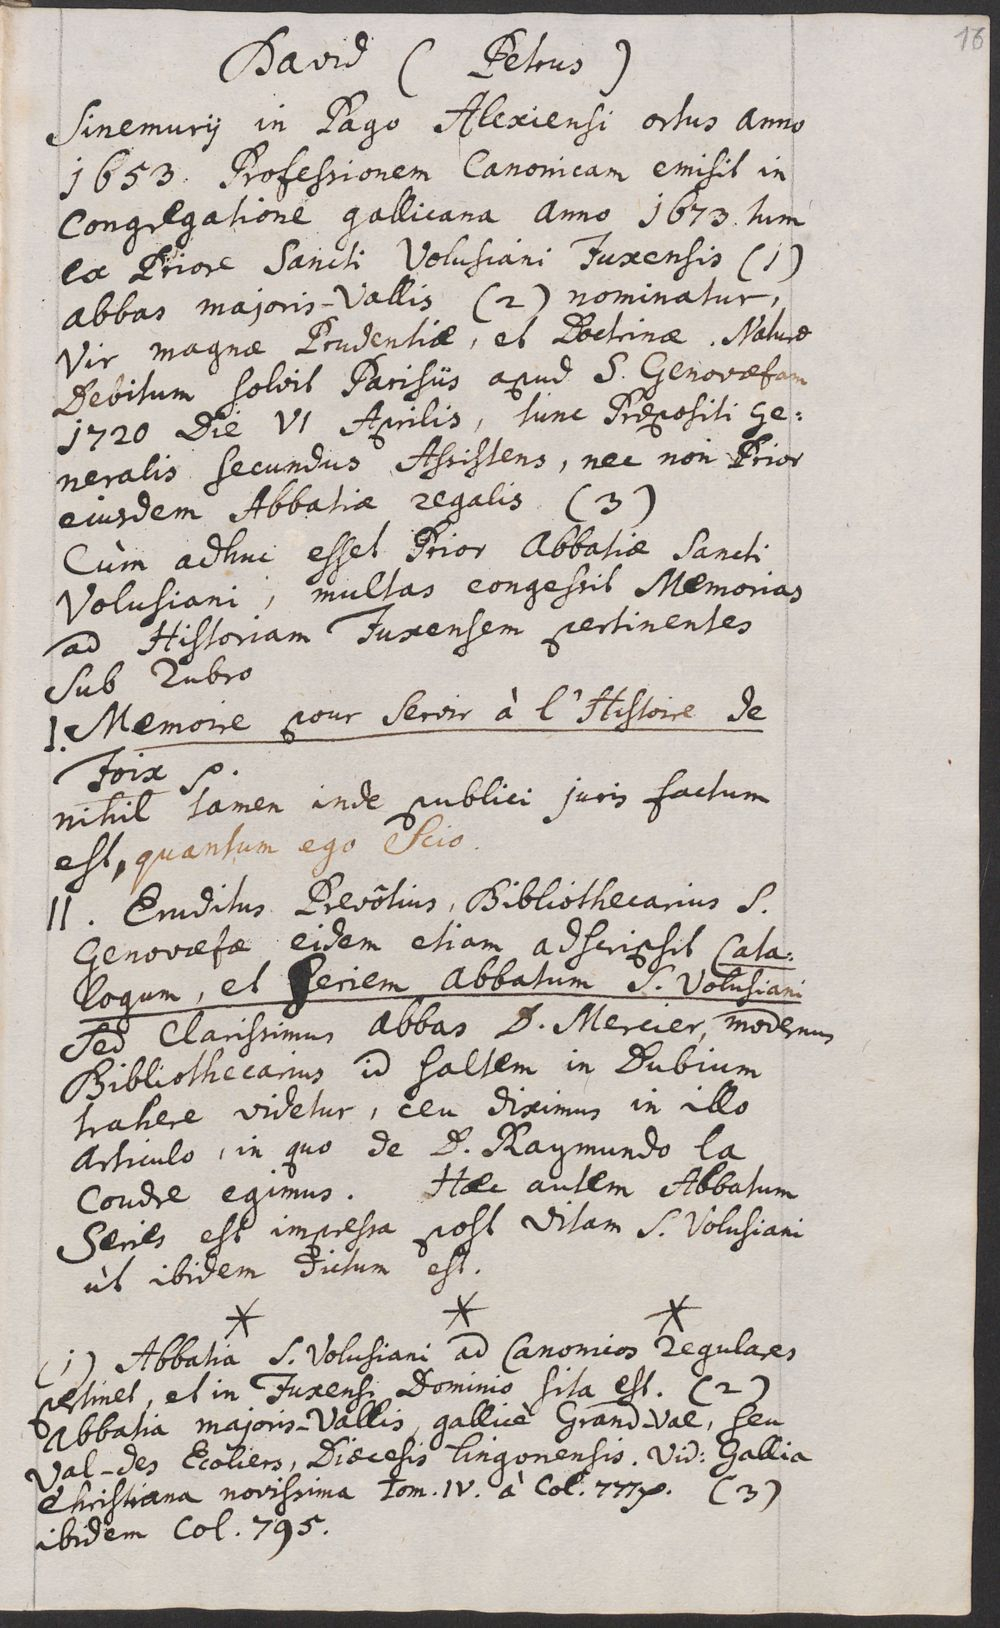 16
David ( Petrus )
Sinemurij in Pago Alexiensi ortus anno
1653. Professionem Canonicam emisit in
Congregatione gallicana anno 1673. tum
ex Priore Sancti Volusiani Fuxensis (1)
abbas majoris-Vallis (2) nominatur,
Vir magnæ Prudentiæ, et Doctrinæ. Naturæ
Debitum solvit Parisiis apud S. Genovæfam
1720 Die VI Aprilis, tunc Præpositi Ge:
neralis secundus Assistens, nec non Prior
eiusdem Abbatiæ regalis. (3)
Cùm adhuc esset Prior Abbatiæ Sancti
Volusiani, multas congessit Memorias
ad Historiam Fuxensem pertinentes
sub Rubro
I. Memoire pour servir à l'Histoire de
Foix
nihil tamen inde publici juris factum
est, quantum ego Scio.
II. Eruditus Prevôtius, Bibliothecarius S.
Genovæfæ eidem etiam adscripsit Cata:
logum, et Seriem Abbatum S. Volusiani
sed Clarissimus Abbas D. Mercier, modernus
Bibliothecarius id saltem in Dubium
trahere videtur, ceu diximus in illo
articulo, in quo de D. Raymundo la
Coudre egimus. Hæc autem Abbatum
Series est impressa post vitam S. Volusiani
ùt ibidem dictum est.
* * *
(1) Abbatia S. Volusiani ad Canonicos Regulares
pertinet, et in Fuxensi Dominio sita est. (2)
Abbatia majoris-Vallis, gallicè Grand-Val, seu
Val-des Ecoliers, Diœcesis lingonensis. Vid: Gallia
Christiana novissima Tom. IV. à Col. 777. (3)
ibidem Col. 795.